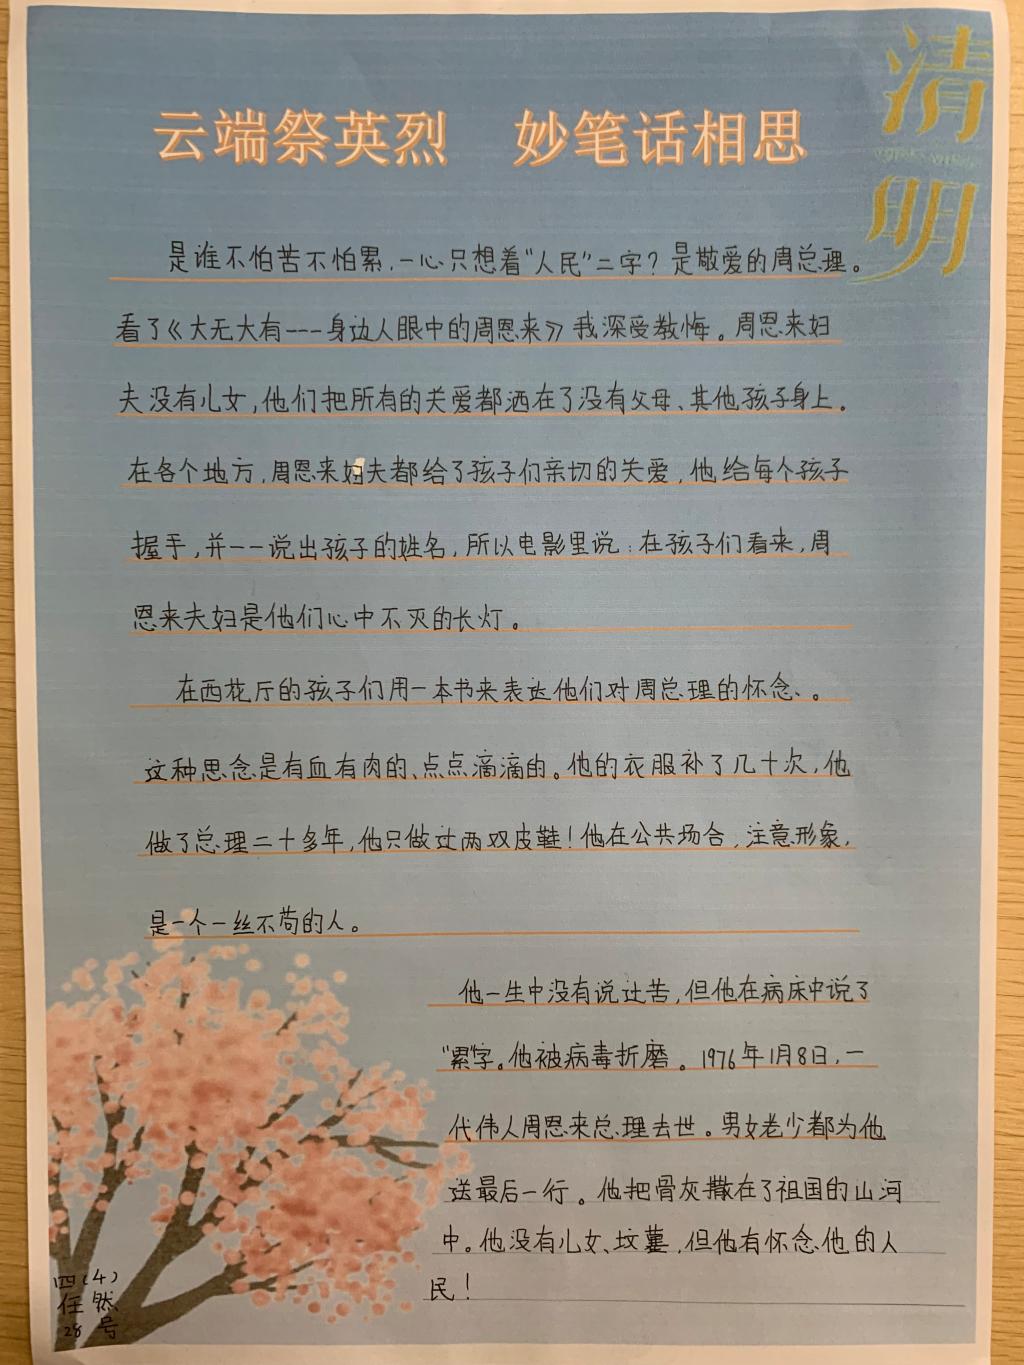 清明
云端祭英烈 妙笔话相思
是谁不怕苦不怕累,一心只想着“人民”二字?是敬爱的周总理。
看了《大无大有---身边人眼中的周恩来》我深受教悔。周恩来妇
夫没有儿女,他们把所有的关爱都洒在了没有父母、其他孩子身上。
在各个地方,周恩来妇夫都给了孩子们亲切的关爱,他给每个孩子
握手,并一一说出孩子的姓名,所以电影里说:在孩子们看来,周
恩来夫妇是他们心中不灭的长灯。
在西花厅的孩子们用一本书来表达他们对周总理的怀念、。
这种思念是有血有肉的、点点滴滴的。他的衣服补了几十次,他
做了总理二十多年,他只做过两双皮鞋!他在公共场合,注意形象,
是一个一丝不苟的人。
他一生中没有说过苦,但他在病床中说了
“累”字。他被病毒折磨。1976年1月8日,一
代伟人周恩来总理去世。男女老少都为他
送最后一行。他把骨灰撒在了祖国的山河
中。他没有儿女、坟墓,但他有怀念他的人
民!
四(4)
任然
28号